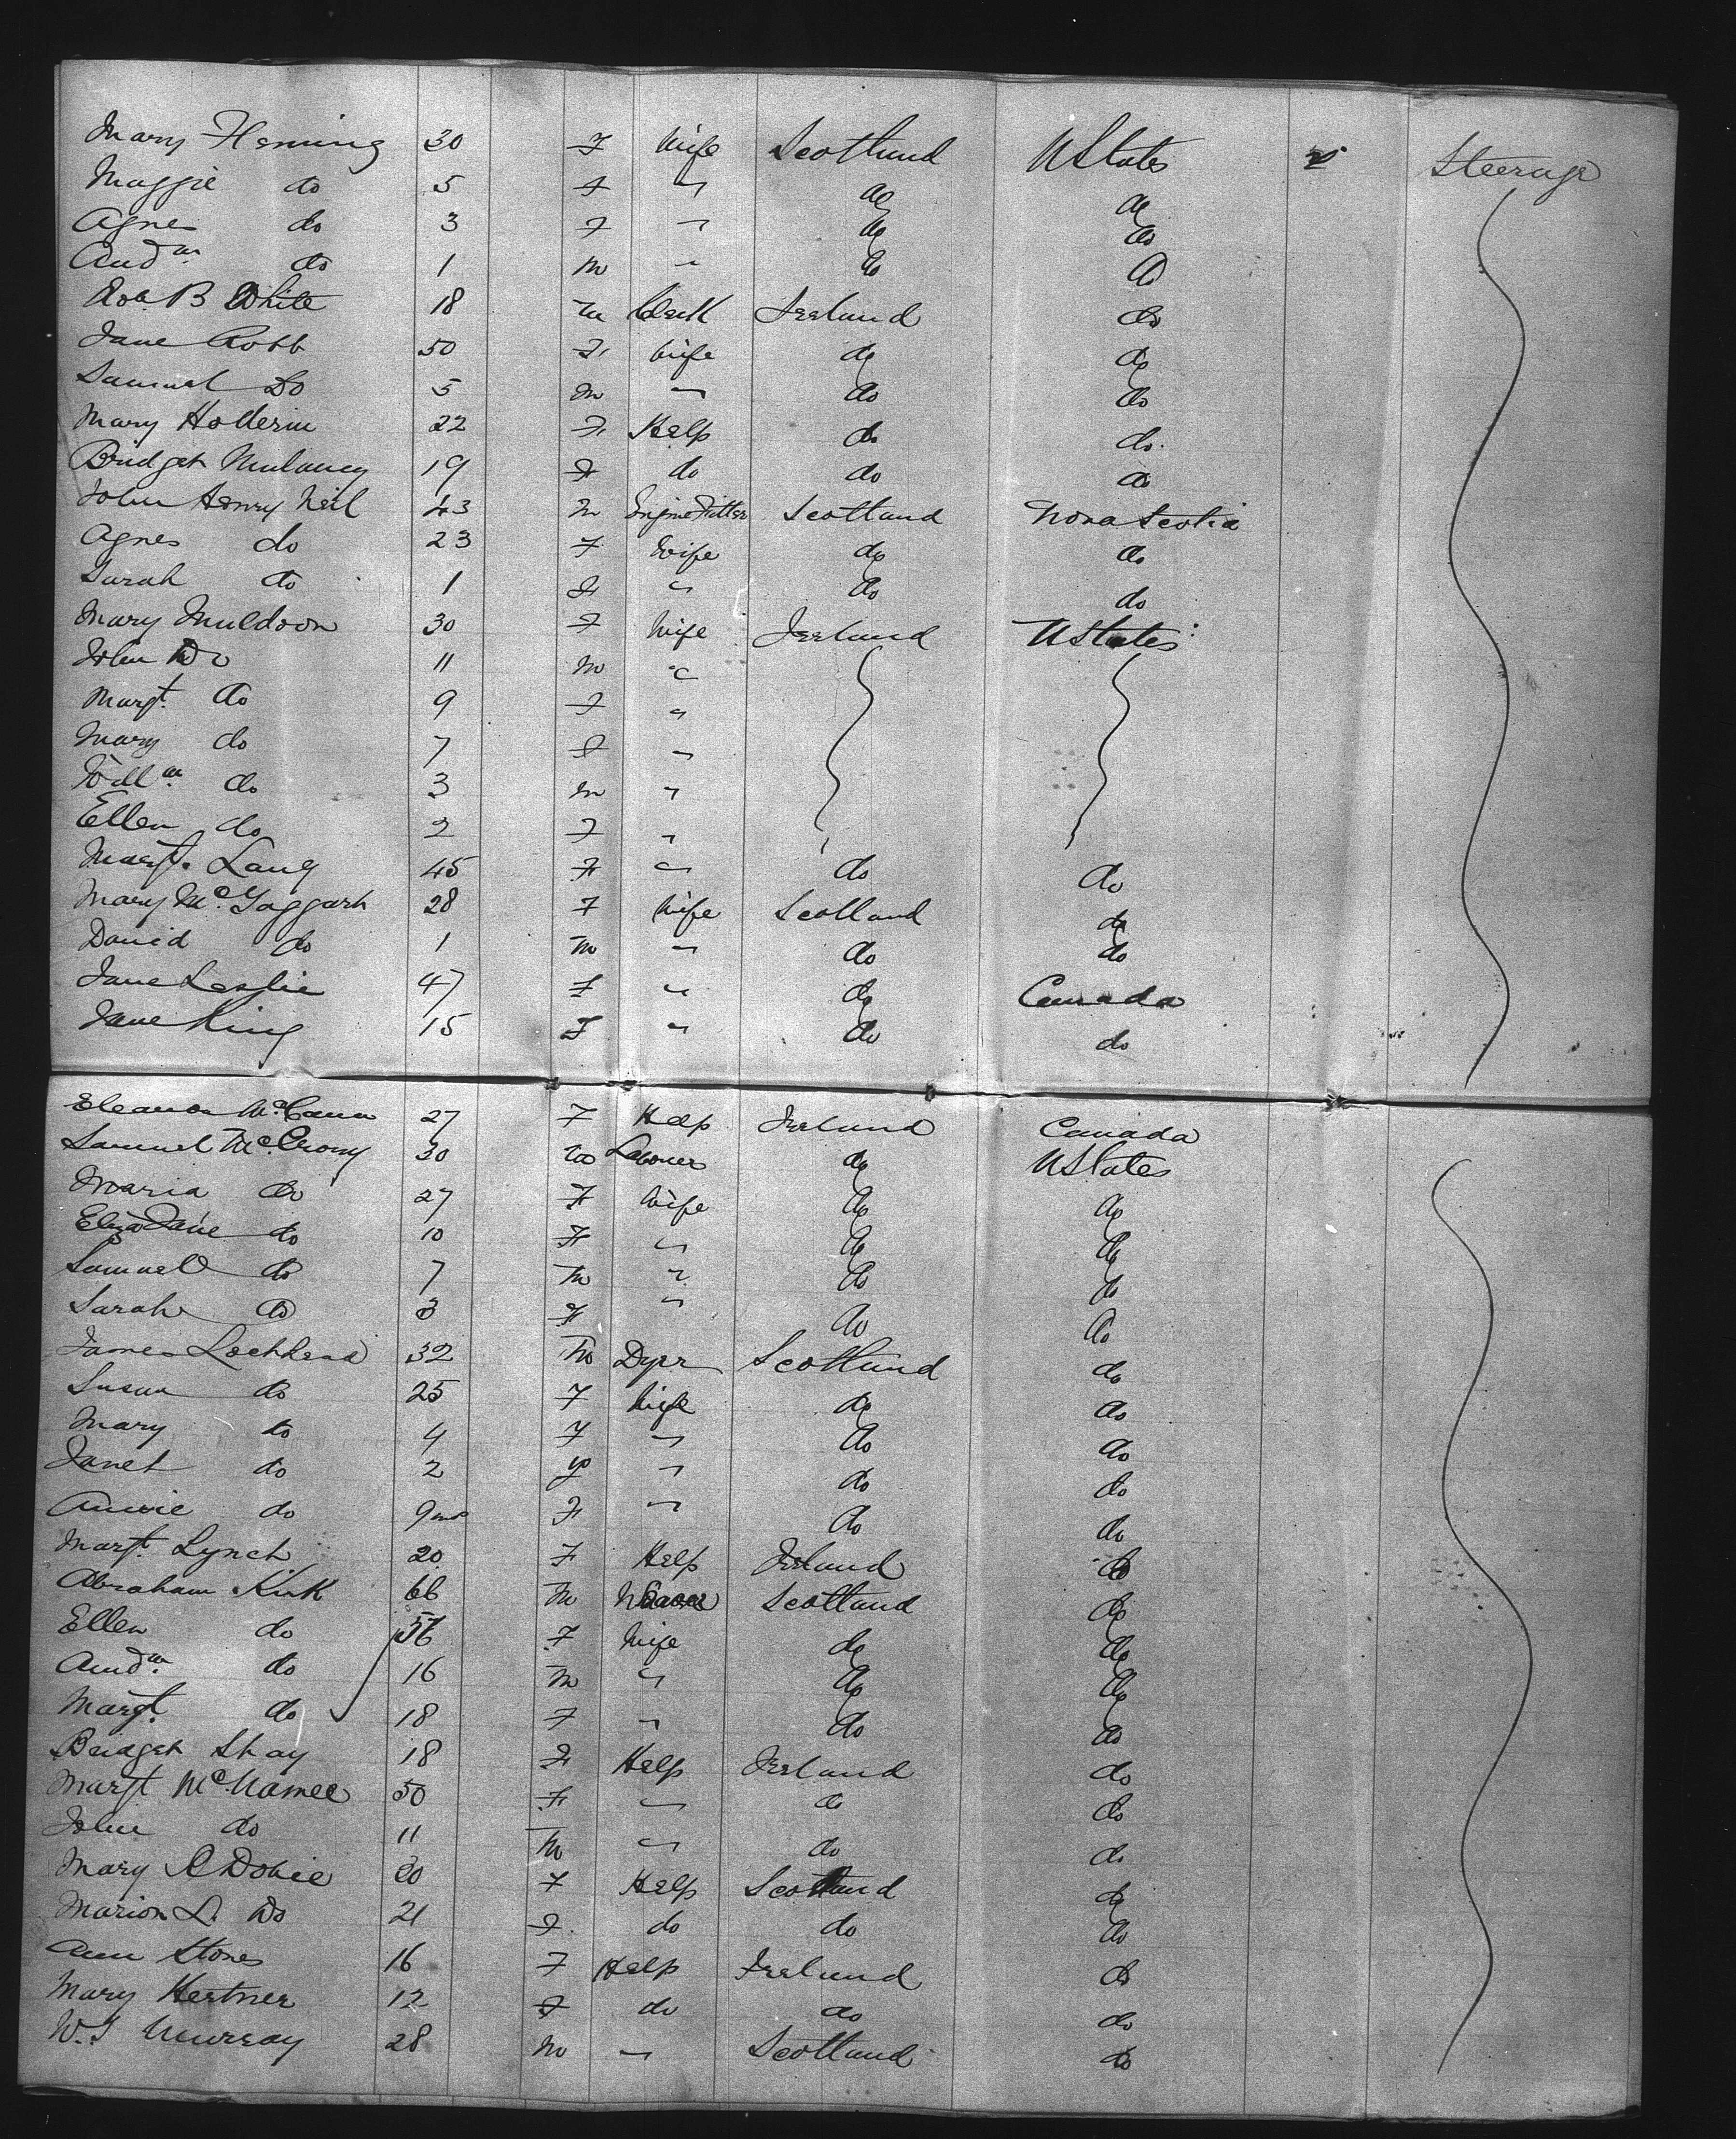 Mary Fleming 30 F Wife Scotland U States Steerage
Maggie do 5 F " do do
Agnes do 3 F " do do
Andw do 1 M " do do
Rob B White 18 M Clerk Ireland do
Jane Robb 50 F Wife do do
Samuel Do 5 M " do do
Mary Hollerin 22 F Help do do
Bridget Mulaney 19 F do do do
John Henry Neil 43 M Engine Fitter Scotland Nova Scotia
Agnes do 23 F Wife do do
Sarah do 1 F " do do
Mary Muldoon 30 F Wife Ireland U States
John Do 11 M "
Margt. do 9 F "
Mary do 7 F "
Willm do 3 M "
Ellen do 2 F "
Margt. Lang 45 F " do do
Mary McTaggart 28 F Wife Scotland do
David do 1 M " do do
Jane Leslie 47 F " do Canada
Jane King 15 F " do do
Eleanor McCann 27 F Help Ireland Canada
Samuel McCrony 30 M Laborer do U States
Maria do 27 F Wife do do
Eliza Jane do 10 F " do do
Samuel do 7 M " do do
Sarah do 3 F " do do
James Lochhead 32 M Dyer Scotland do
Susan do 25 F Wife do do
Mary do 4 F " do do
Janet do 2 F " do do
Annie do 9 mos F " do do
Margt. Lynch 20 F Help Ireland do
Abraham Kirk 66 M Weaver Scotland do
Ellen do 56 F Wife do do
Andw. do 16 M " do do
Margt. do 18 F " do do
Bridget Shay 18 F Help Ireland do
Margt McNamee 50 F " do do
John do 11 M " do do
Mary R Dobie 20 F Help Scotland do
Marion L. Do 21 F do do do
Ann Stones 16 F Help Ireland do
Mary Hertner 12 F do do do
W. J Murray 28 M " Scotland do